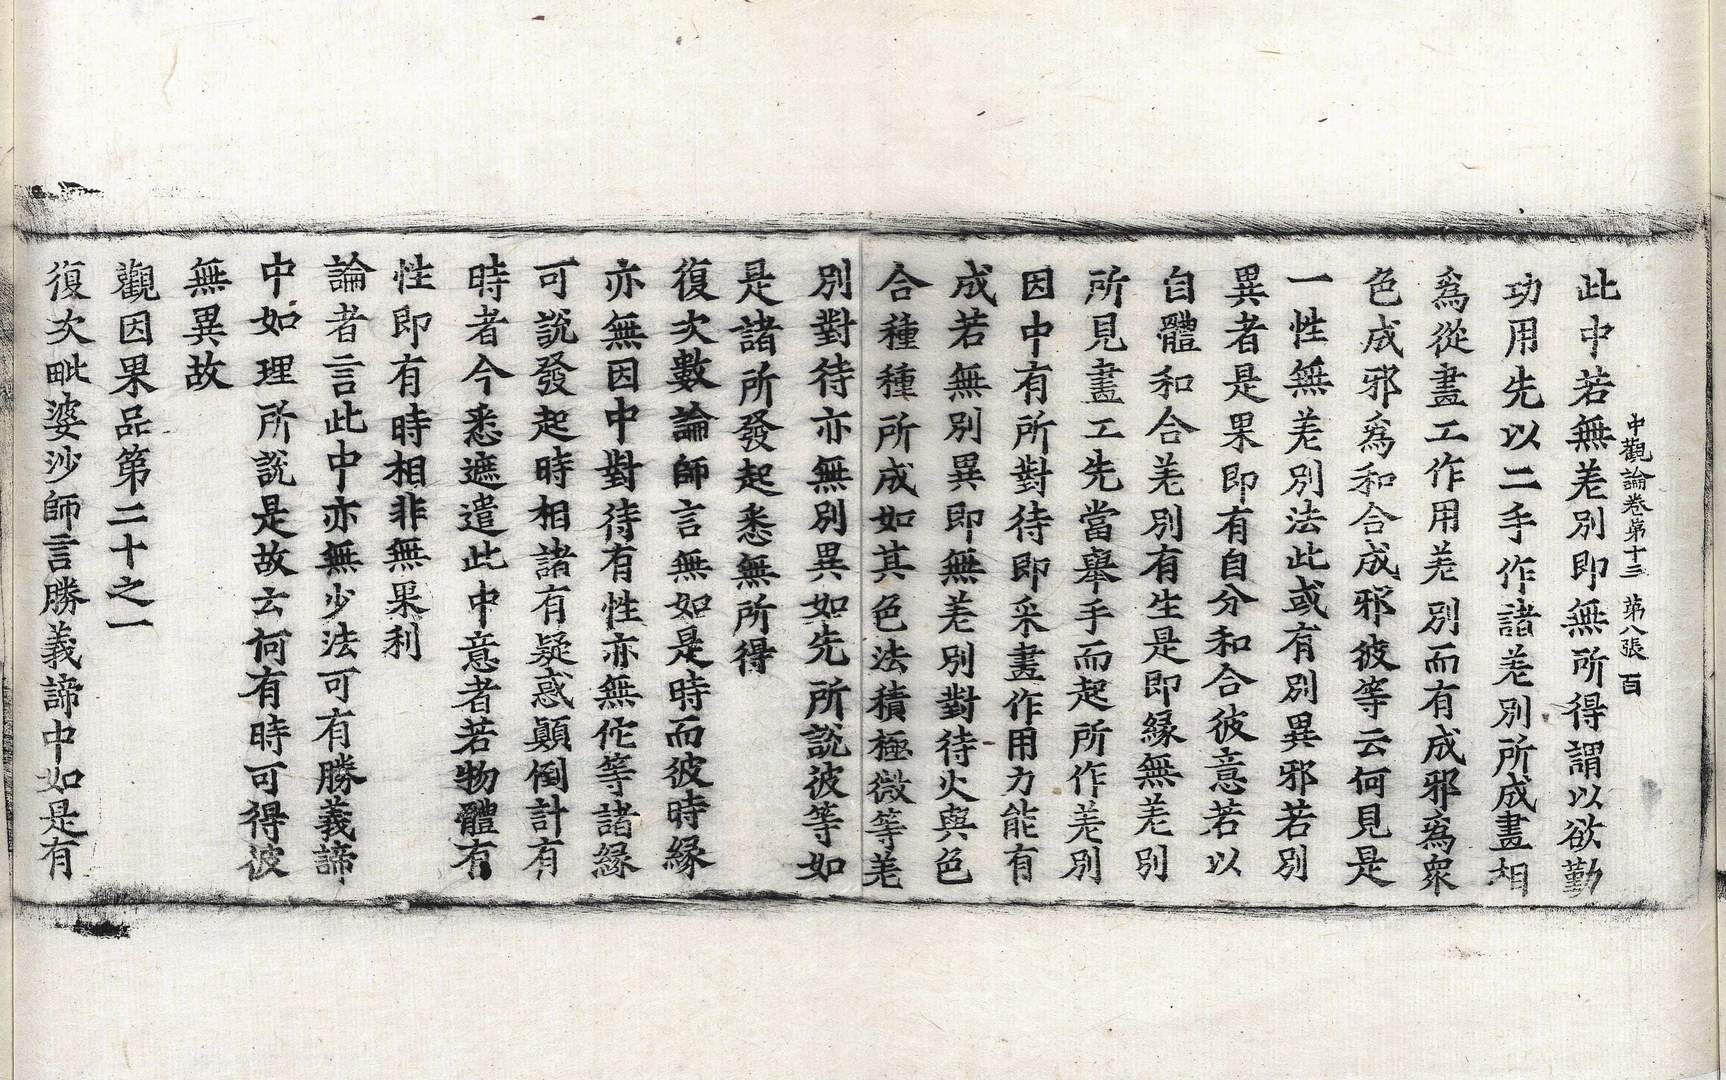 中觀論卷第十三 第八張 百
此中若無差別即無所得謂以欲勤
功用先以二手作諸差別所成畫相
爲從畫工作用差別而有成邪爲衆
色成邪爲和合成邪彼等云何見是
一性無差別法此或有別異邪若別
異者是果即有自分和合彼意若以
自體和合差別有生是即緣無差別
所見畫工先當舉手而起所作差別
因中有所對待即采畫作用力能有
成若無別異即無差別對待火與色
合種種所成如其色法積極微等差
別對待亦無別異如先所說彼等如
是諸所發起悉無所得
復次數論師言無如是時而彼時緣
亦無因中對待有性亦無佗等諸緣
可說發起時相諸有疑惑顚倒計有
時者今悉遮遣此中意者若物體有
性即有時相非無果利
論者言此中亦無少法可有勝義諦
中如理所說是故云何有時可得彼
無異故
觀因果品第二十之一
復次毗婆沙師言勝義諦中如是有